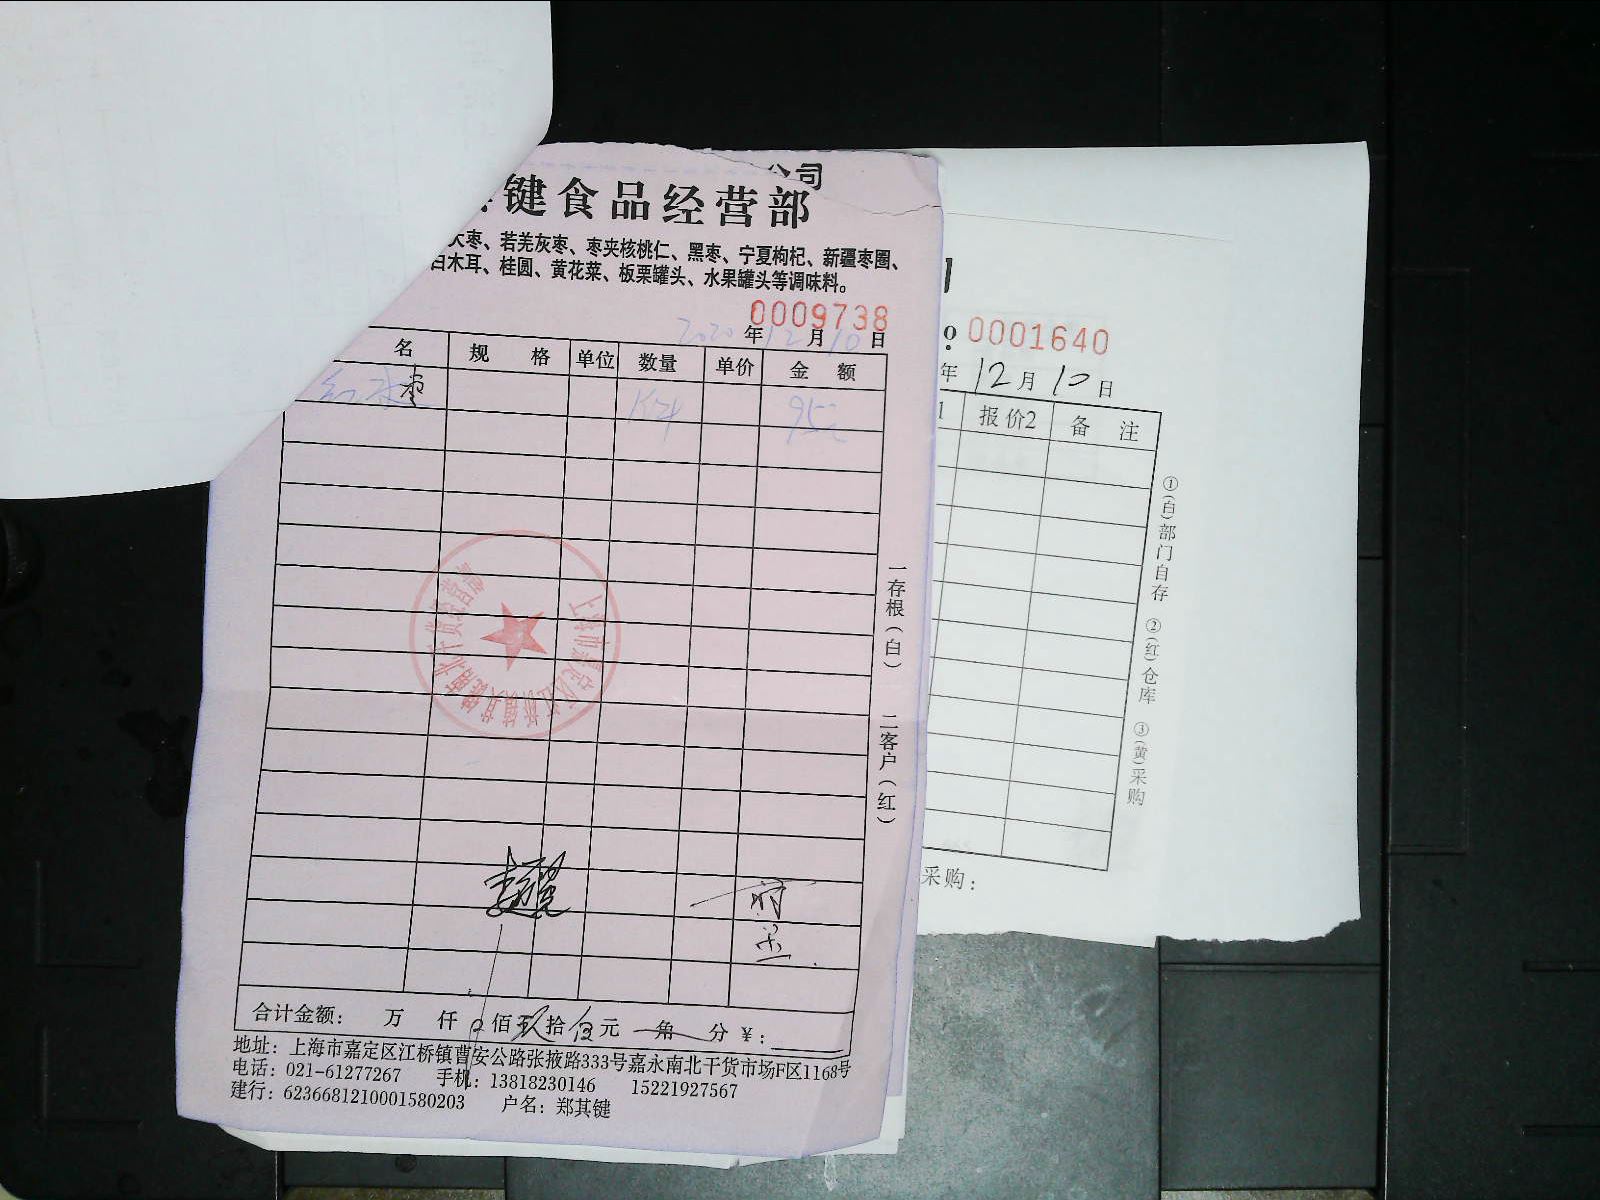 公司
键食品经营部
大枣、若羌灰枣、枣夹核桃仁、黑枣、宁夏枸杞、新疆枣圈、
白木耳、桂圆、黄花菜、板栗罐头、水果罐头等调味料。
0009738
2020年12月10日
名 规格 单位 数量 单价 金额
枣 95
一存根（白） 二客户（红）
上海市嘉定区江桥镇其键南北干货经营部
合计金额： 万 仟 0佰玖拾伍元 角 分 ￥：
地址：上海市嘉定区江桥镇曹安公路张掖路333号嘉永南北干货市场F区1168号
电话：021-61277267 手机：13818230146 15221927567
建行：6236681210001580203 户名：郑其键
0001640
年12月10日
1 报价2 备注
①（白）部门自存 ②（红）仓库 ③（黄）采购
采购：